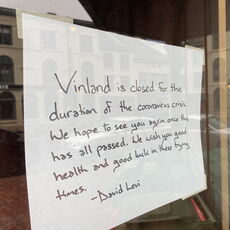 Vinland is closed for the
duration of the coronavirus crisis.
We hope to see you again once this
has all passed. We wish you good
health and good luck in these trying
times.
-David Levi